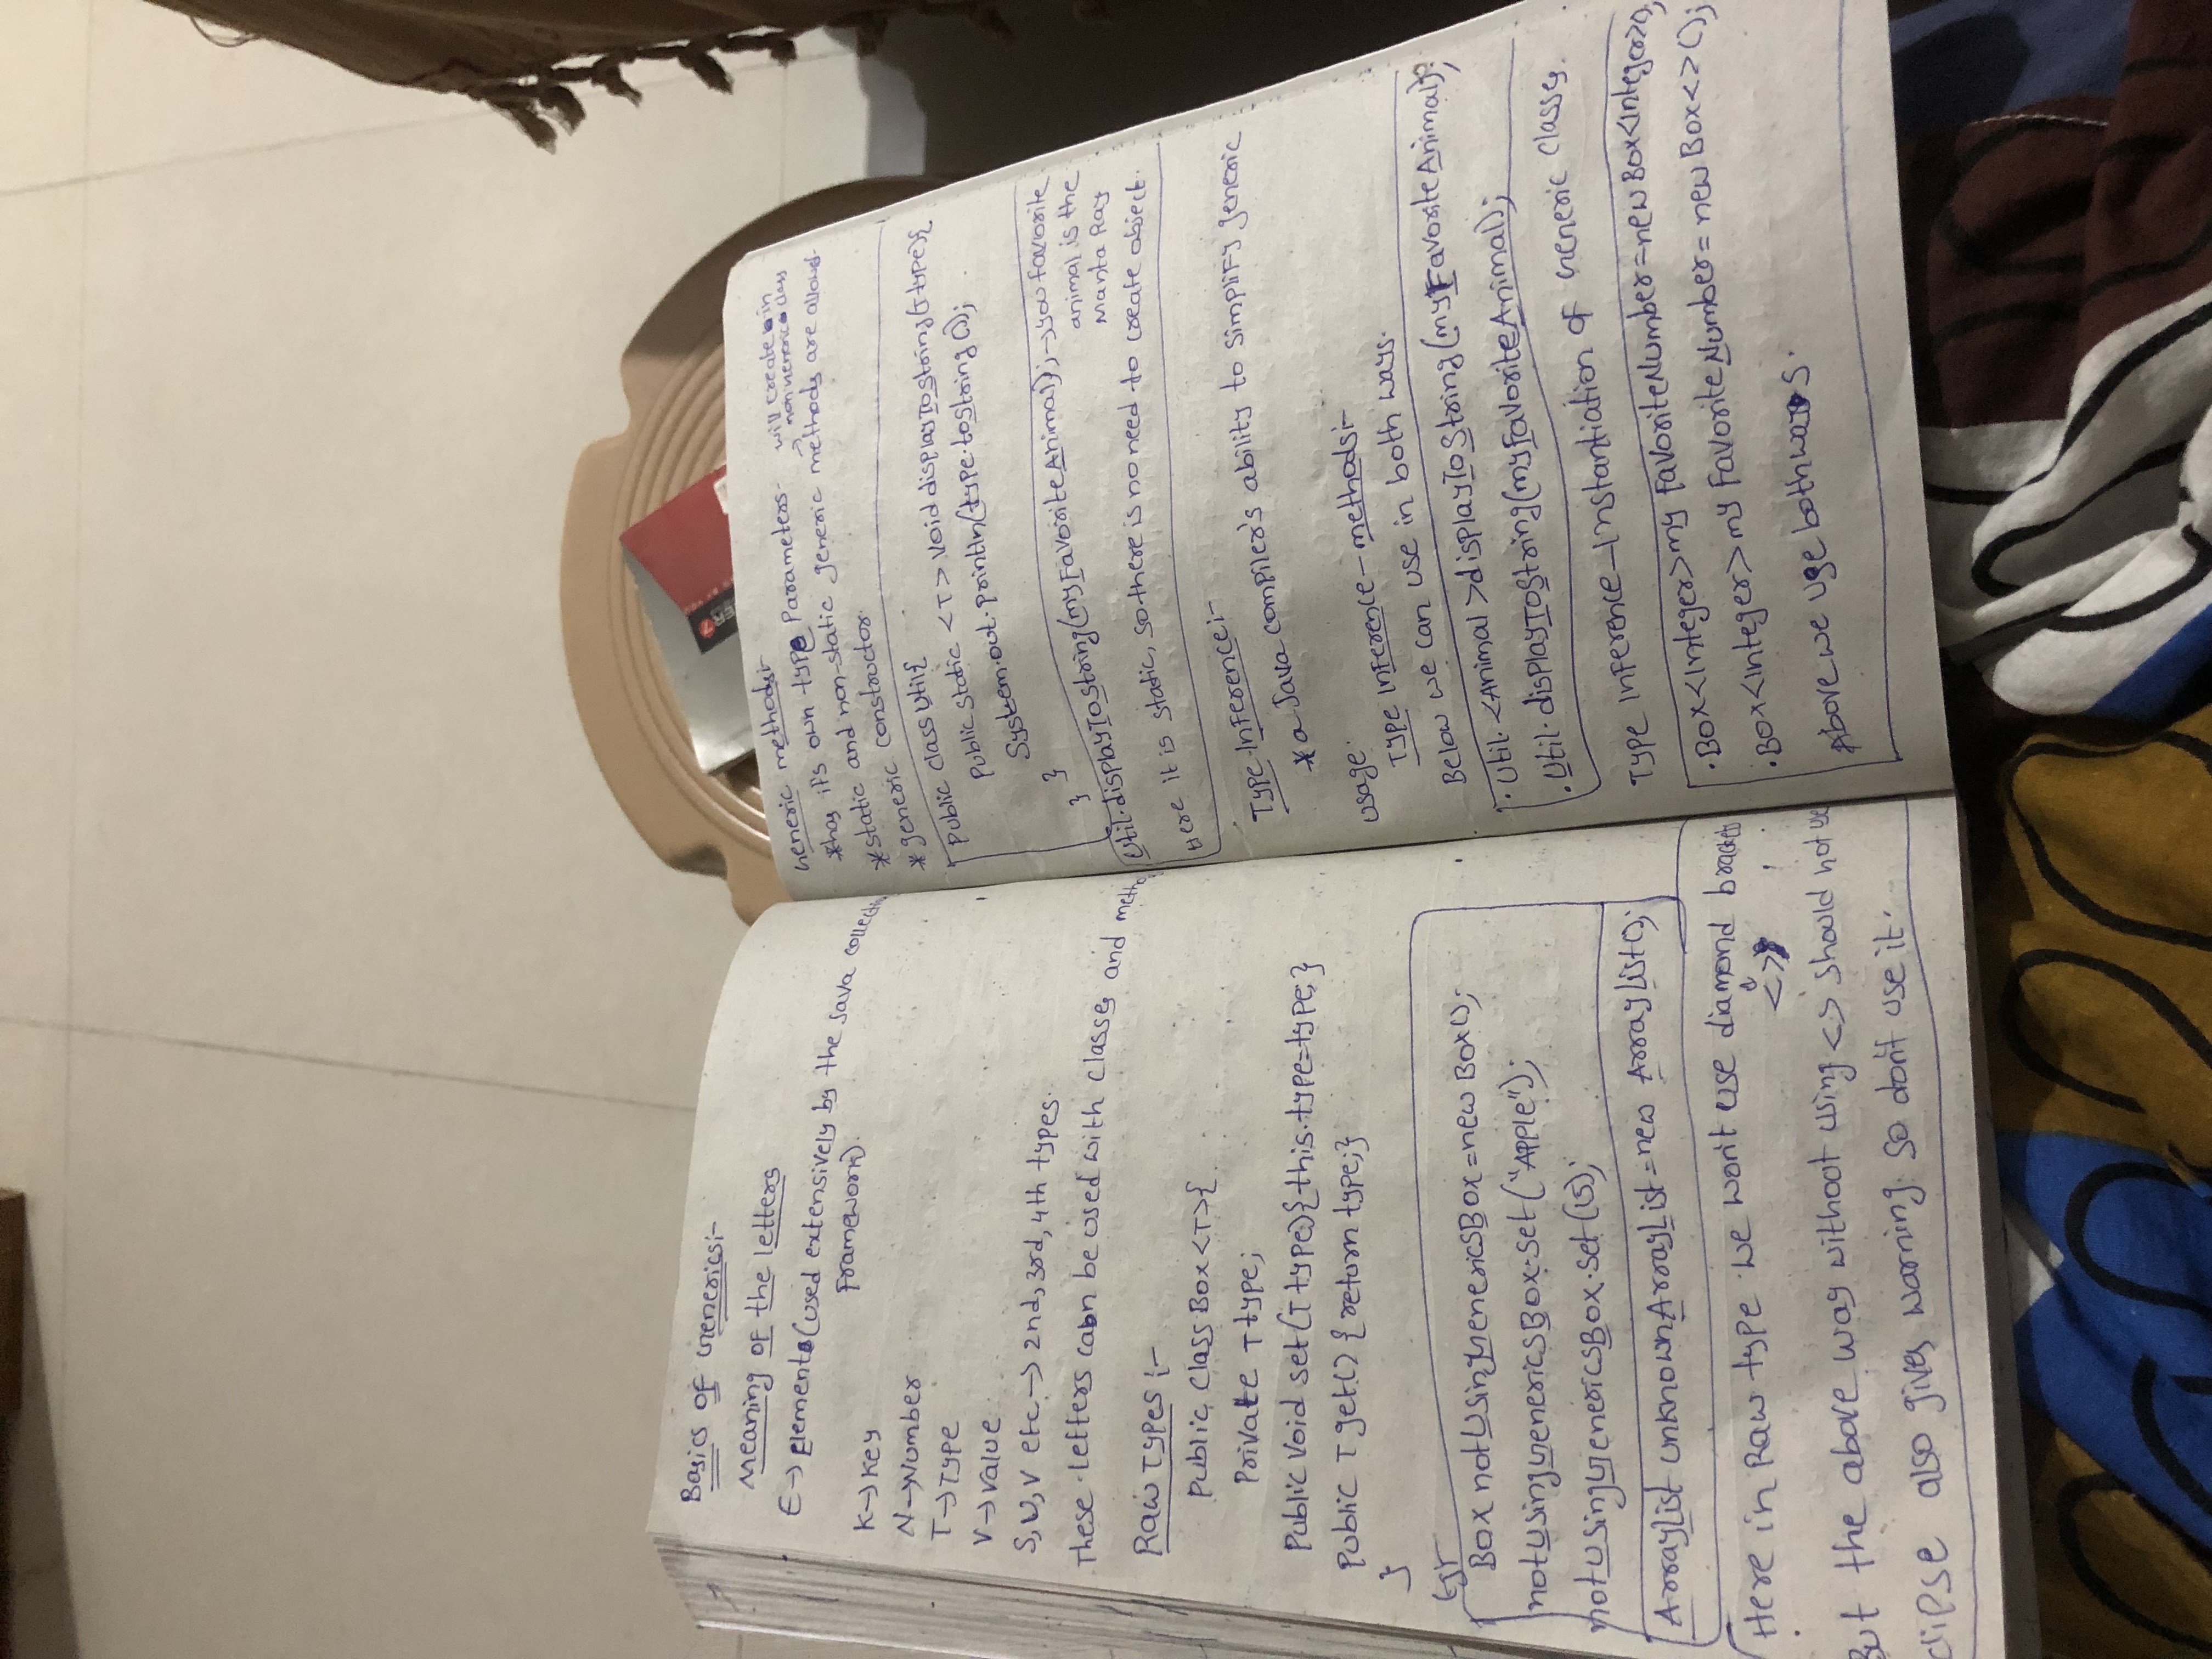 Basics of Generics:-
Meaning of the letters
E→ Elements (used extensively by the Java collection
Framework).
K→Key
N→Number
T→Type
V→Value
S,U,V etc.→ 2nd,3rd,4th types.
These letters can be used with classes and metho
Raw Types :-
Public Class Box<T>{
Private T type;
Public Void set(T type){this.type=type;}
Public T get() {return type;}
}
Box notUsingGenericsBox=new Box();
notUsingGenericsBox.set("Apple");
notUsingGenericsBox.set(15);
ArrayList unknownArrayList=new ArrayList();
Here in Raw type we won't use diamond brackets
<>
But the above way without using <> should not use
clipse also gives warning. So don't use it.
Generic methods:-
*has it's own type Parameters.
will create in
→ non Generic class
*static and non-static generic methods are allowed.
*generic constructor.
Public class Util{
Public static <T> Void displayToString(T type){
System.out.println(type.toString());
}
}
Util.displayToString(myFavoriteAnimal);→you favorite
animal is the
Manta Ray
Here it is static, so there is no need to create object.
Type Inference:-
*a Java compiler's ability to simplify generic
usage.
Type Inference-methods:-
Below we can use in both ways.
.Util.<Animal>displayToString(myFavoriteAnimal);
.Util.displayToString(myFavoriteAnimal);
Type Inference-Instantiation of Generic Classes.
.Box<Integer>my FavoriteNumber=new Box<Integer>();
.Box<Integer>my FavoriteNumber= new Box<>();
Above we use both ways.